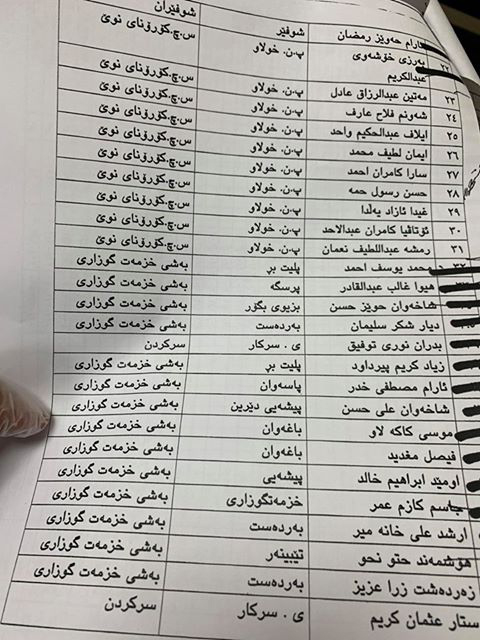 ئارام حەوێز رمضان شوفێر شوفێران
٢٢ بەرزی خۆشەوی عبدالکریم پ.ن. خولاو س.چ.کۆرۆنای نوێ
٢٣ مەتین عبدالرزاق عادل پ.ن. خولاو س.چ.کۆرۆنای نوێ
٢٤ شەونم فلاح عارف پ.ن. خولاو س.چ.کۆرۆنای نوێ
٢٥ ایلاف عبدالحکیم واحد پ.ن. خولاو س.چ.کۆرۆنای نوێ
٢٦ ایمان لطیف محمد پ.ن. خولاو س.چ.کۆرۆنای نوێ
٢٧ سارا کامران احمد پ.ن. خولاو س.چ.کۆرۆنای نوێ
٢٨ حسن رسول حمه پ.ن. خولاو س.چ.کۆرۆنای نوێ
٢٩ غیدا ئازاد یەلدا پ.ن. خولاو س.چ.کۆرۆنای نوێ
٣٠ ئۆتاڤیا کامران عبدالاحد پ.ن. خولاو س.چ.کۆرۆنای نوێ
٣١ رمشه عبداللطیف نعمان پ.ن. خولاو س.چ.کۆرۆنای نوێ
٣٢ محمد یوسف احمد پلیت بڕ بەشی خزمەت گوزاری
هیوا غالب عبدالقادر پرسگە بەشی خزمەت گوزاری
شاخەوان حوێز حسن بزیوی بگۆر بەشی خزمەت گوزاری
دیار شکر سلیمان بەردەست بەشی خزمەت گوزاری
بدران نوری توفیق ی . سرکار سرکردن
زیاد کریم پیرداود پلیت بڕ بەشی خزمەت گوزاری
ئارام مصطفی خدر پاسەوان بەشی خزمەت گوزاری
شاخەوان علی حسن پیشەیی دێرین بەشی خزمەت گوزاری
موسی کاکە لاو باغەوان بەشی خزمەت گوزاری
فیصل مغدید باغەوان بەشی خزمەت گوزاری
اومێد ابراهیم خالد پیشەیی بەشی خزمەت گوزاری
جاسم کازم عمر خزمەتگوزاری بەشی خزمەت گوزاری
ارشد علی خانە میر بەردەست بەشی خزمەت گوزاری
هۆشمەند حتو نحو تێبینەر بەشی خزمەت گوزاری
زەردەشت زرا عزیز بەردەست بەشی خزمەت گوزاری
ستار عثمان کریم ی . سرکار سرکردن